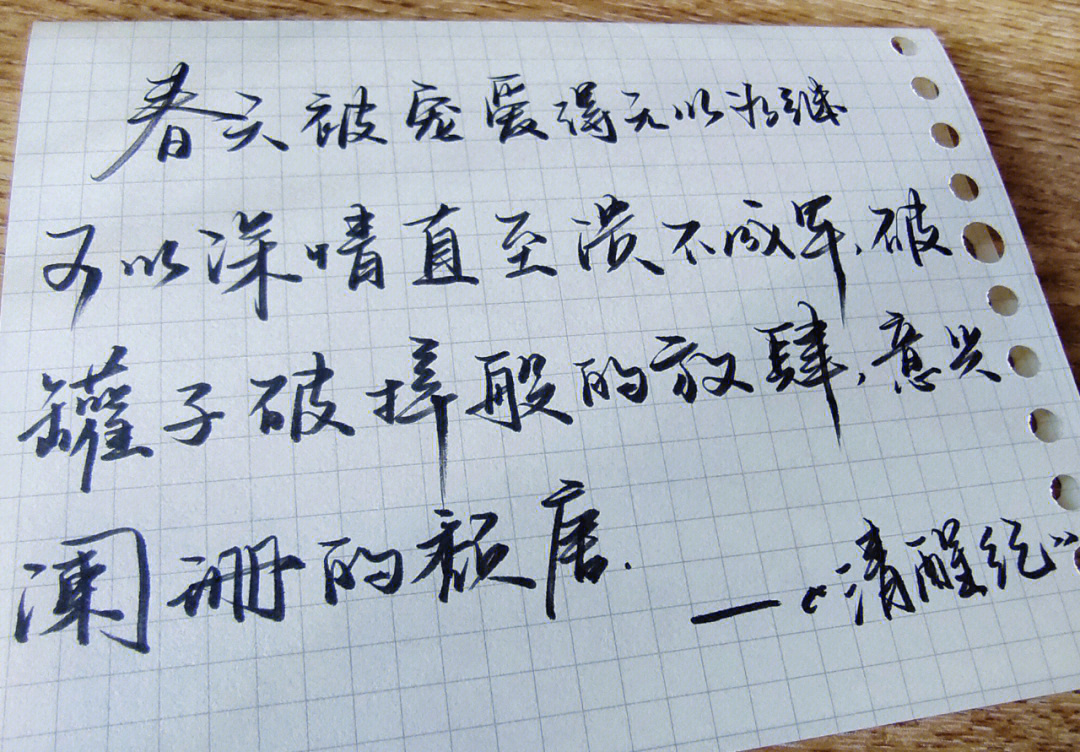 春天被宠爱得无以为继
可以深情直至溃不成军,破
罐子破摔般的放肆,意兴
阑珊的颓唐.
——“清醒纪”